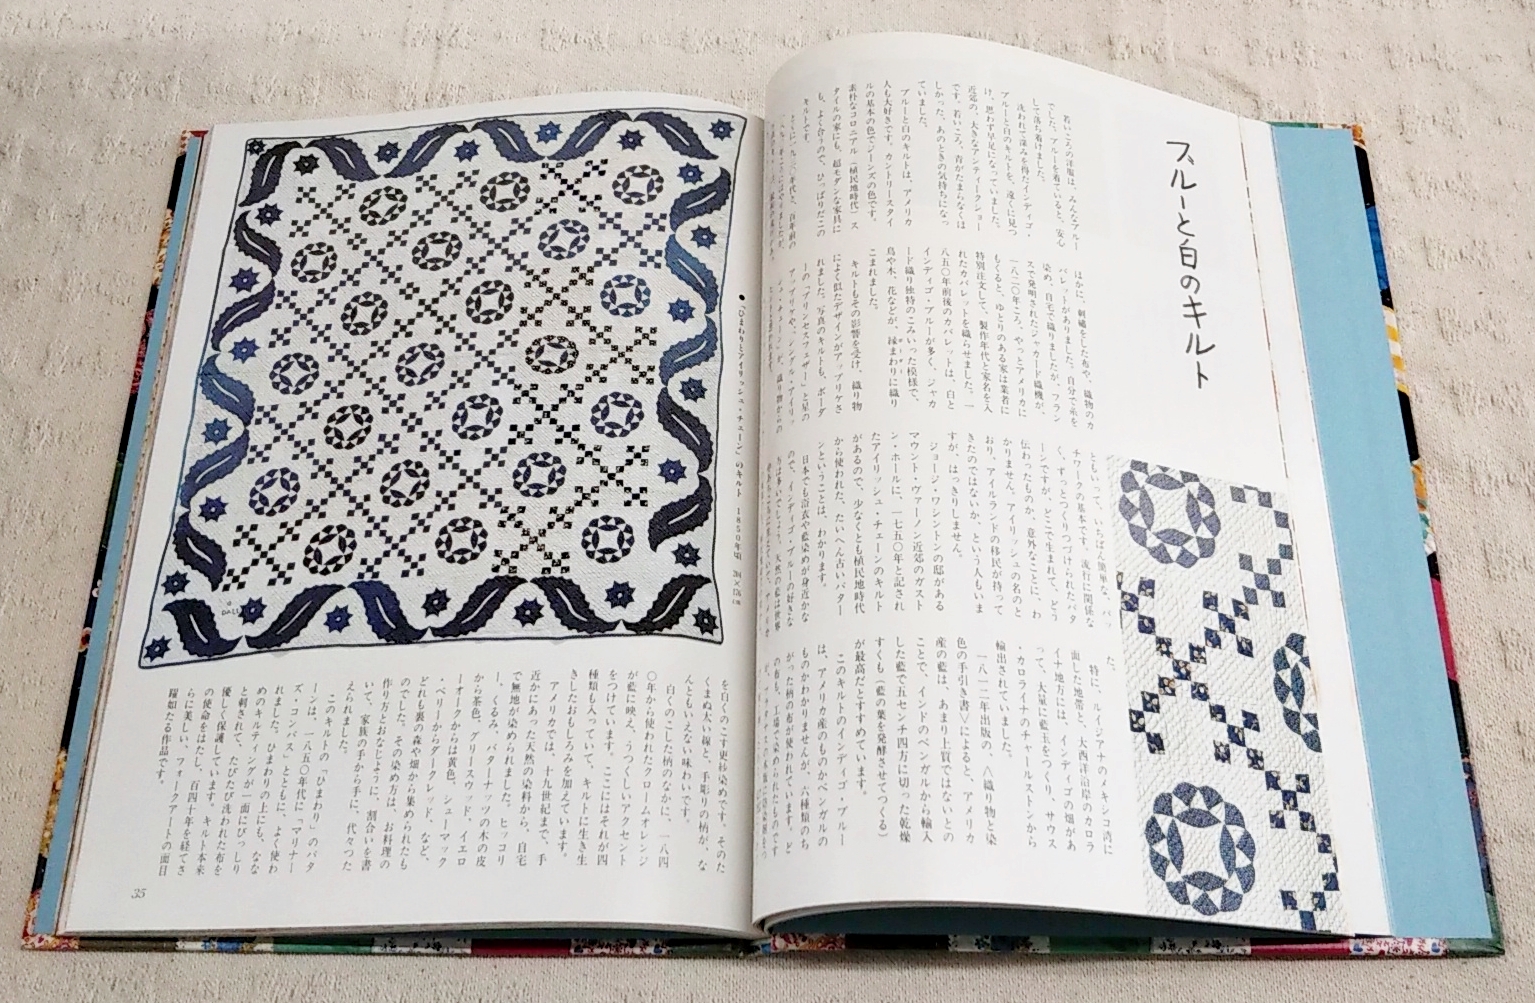 ブルーと白のキルト
若いころの洋服は、みんなブルー
でした。ブルーを着ていると、安心
して落ち着けました。
洗われて深みを得たインディゴ・
ブルーと白のキルトを、遠くに見つ
け、思わず早足になっていました。
近郊の、大きなアンティークショー
です。若いころ、青がたまらなくほ
しかった、あのときの気持ちになっ
ていました。
ブルーと白のキルトは、アメリカ
人も大好きです。カントリースタイ
ルの基本の色で、ジーンズの色です。
素朴なコロニアル（植民地時代）ス
タイルの家にも、超モダンな家具に
も、よく合うので、ひっぱりだこの
キルトです。
ほかに、刺繡をした布や、織物のカ
バレットがありました。自分で糸を
染め、自宅で織りましたが、フラン
スで発明されたジャカード織機が、
一八二〇年ころ、やっとアメリカに
もくると、ゆとりのある家は業者に
特別注文して、製作年代と家名を入
れたカバレットを織らせました。一
八五〇年前後のカバレットは、白と
インディゴ・ブルーが多く、ジャカ
ード織り独特のこみいった模様で、
鳥や木、花などが、縁まわりに織り
こまれました。
キルトもその影響を受け、織り物
によく似たデザインがアップリケさ
れました。写真のキルトも、ボーダ
ーの「プリンセスフェザー」と星の
ともいって、いちばん簡単な、パッ
チワークの基本です。流行に関係な
く、ずっとつくりつづけられたパタ
ーンですが、どこで生まれて、どう
伝わったものか、意外なことに、わ
かりません。アイリッシュの名のと
おり、アイルランドの移民が持って
きたのではないか、という人もいま
すが、はっきりしません。
ジョージ・ワシントンの邸がある
マウント・ヴァーノン近郊のガスト
ン・ホールに、一七五〇年と記され
たアイリッシュ・チェーンのキルト
があるので、少なくとも植民地時代
から使われた、たいへん古いパター
ンということは、わかります。
日本でも浴衣や藍染めが身近かな
ので、インディゴ・ブルーの好きな
た。
特に、ルイジアナのメキシコ湾に
面した地帯と、大西洋沿岸のカロラ
イナ地方には、インディゴの畑があ
って、大量に藍玉をつくり、サウス
・カロライナのチャールストンから
輸出されていました。
一八一二年出版の、〈織り物と染
色の手引き書〉によると、アメリカ
産の藍は、あまり上質ではないとの
ことで、インドのベンガルから輸入
した藍で五センチ四方に切った乾燥
すくも（藍の葉を発酵させてつくる）
が最高だとすすめています。
このキルトのインディゴ・ブルー
は、アメリカ産のものかベンガルの
ものかわかりませんが、六種類のち
がった柄の布が使われています。ど
の布も、工場で染められたものです
●「ひまわりとアイリッシュ・チェーン」のキルト 1850年頃
を白くのこす更紗染めです。そのた
くまぬ太い線と、手彫りの柄が、な
んともいえない味わいです。
白くのこした柄のなかに、一八四
〇年から使われたクロームオレンジ
が藍に映え、うつくしいアクセント
をつけています。ここにはそれが四
種類も入っていて、キルトに生き生
きしたおもしろみを加えています。
アメリカでは、十九世紀まで、手
近かにあった天然の染料から、自宅
で無地が染められました。ヒッコリ
ー、くるみ、バターナッツの木の皮
から茶色、グリースウッド、イエロ
ーオークからは黄色、シューマック
・ベリーからダークレッド、など、
どれも裏の森や畑から集められたも
のでした。その染め方は、お料理の
作り方とおなじように、割合いを書
いて、家族の手から手に、代々つた
えられました。
このキルトの「ひまわり」のパタ
ーンは、一八五〇年代に「マリナー
ズ・コンパス」とともに、よく使わ
れました。ひまわりの上にも、なな
めのキルティングが一面にびっしり
と刺されて、たびたび洗われた布を
優しく保護しています。キルト本来
の使命をはたし、百四十年を経てさ
らに美しい、フォークアートの面目
躍如たる作品です。
35